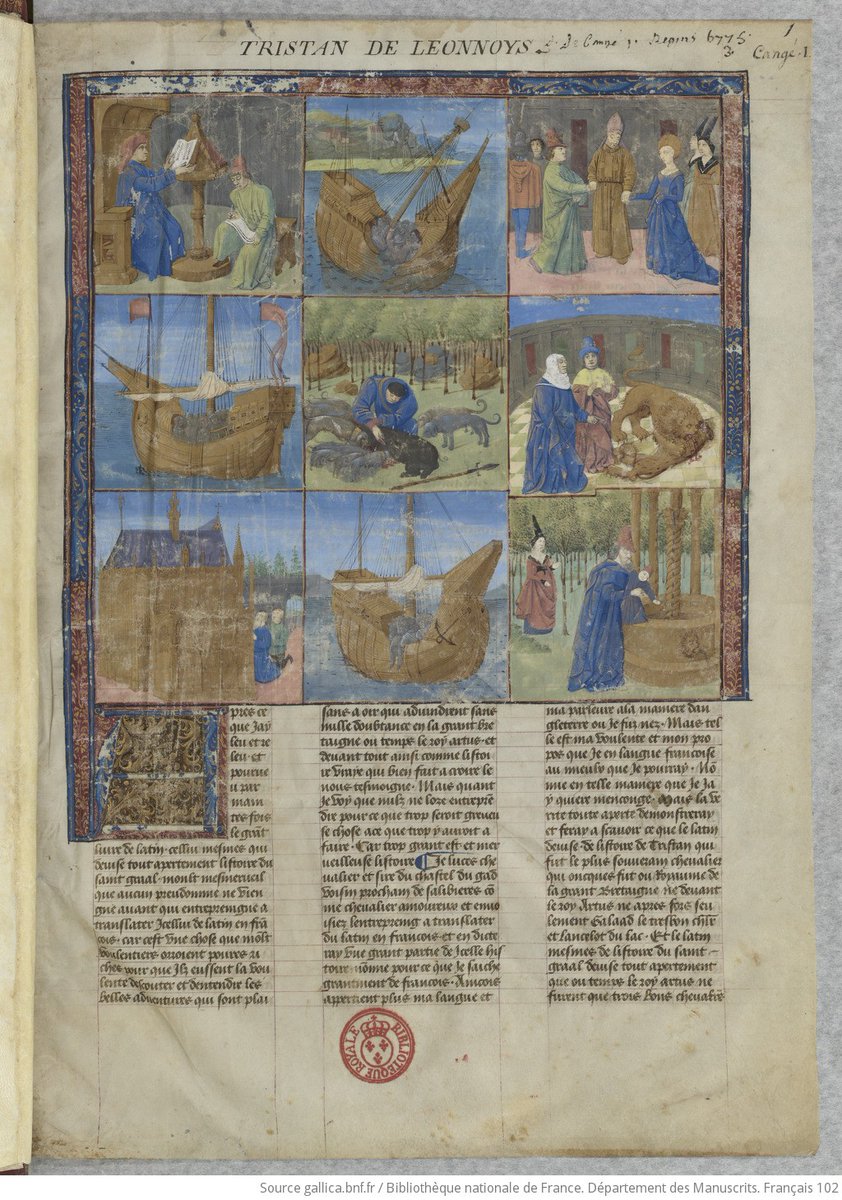 TRISTAN DE LEONNOYS
6775
3
1
Cangé. 1.
pres ce
que Jay
leu et re
leu et
pourueu
u par
main
tes fois
le grãt
liure de latin. cellui mesmes qui
deuise tout apertement listoire du
saint graal. moult mesmerueil
que aucun preudomme ne vien
gne auant qui entrepreingne a
translater Icellui de latin en frã
cois. car cest vne chose que molt
voulentiers oroient poures ri
ches pour que Ilz eussent la vou
lente descouter et dentendre les
belles aduentures qui sont plai
sans a oir qui aduindrent sans
nulle doubtance en la grant bre
taigne ou temps le roy artus. et
deuant tout ainsi comme listoi
re vraye qui bien fait a croire le
nous tesmoigne. Mais quant
Je voy que nulz ne loze entrepre
dire pour ce que trop seroit greueu
se chose a ce que trop y auroit a
faire. Car trop grant est et mer
ueilleuse listoire Je luces che
ualier et sire du chastel du gad
voisin prochain de salibieres cõ
me chevalier amoureux et enuo
isiez lentrepreing a translater
du latin en francois et en dicte
ray vne grant partie de Icelle his
toire. nõme pour ce que Je saiche
grantment de francois. Aincois
appertient plus ma langue et
ma parleure a la maniere dan
gleterre ou Je fu nez. Mais tel
le est ma voulente et mon pro
pos que Je en langue francoise
au mieulx que Je pourray. Nõ
mie en telle maniere que Je Ja
y quiere menconge. Mais la ve
rite toute aperte demonstreray
et feray a scauoir ce que le latin
deuise de listoire de Tristan qui
fut le plus souuerain cheualier
qui oncques fut ou royaume de
la grant Bretaigne ne deuant
le roy Artus ne apres fors seu
lement Galaad le tresbon chlr
et Lancelot du lac. Et le latin
mesmes de listoire du saint
graal deuise tout apertement
que ou temps le roy artus ne
furent que trois bons cheualrs
BIBLIOTEQUE ROYALE
Source gallica.bnf.fr / Bibliothèque nationale de France. Département des Manuscrits. Français 102